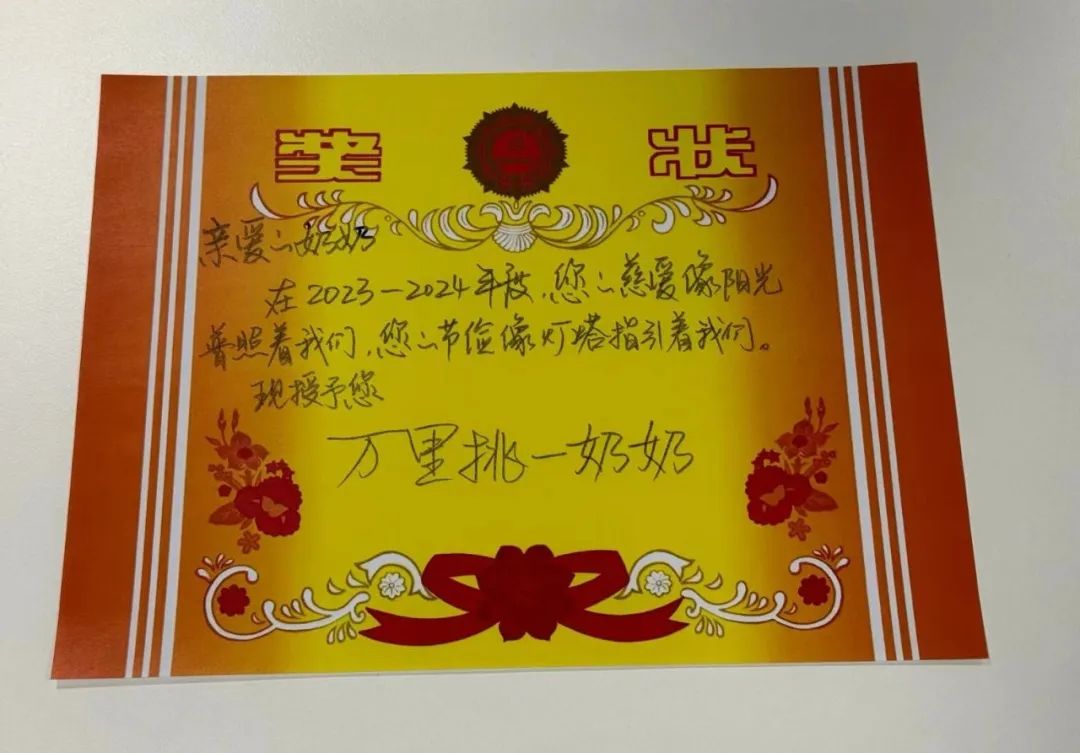 奖状
亲爱的奶奶
在2023-2024年度,您的慈爱像阳光
普照着我们,您的节俭像灯塔指引着我们。
现授予您
万里挑一奶奶